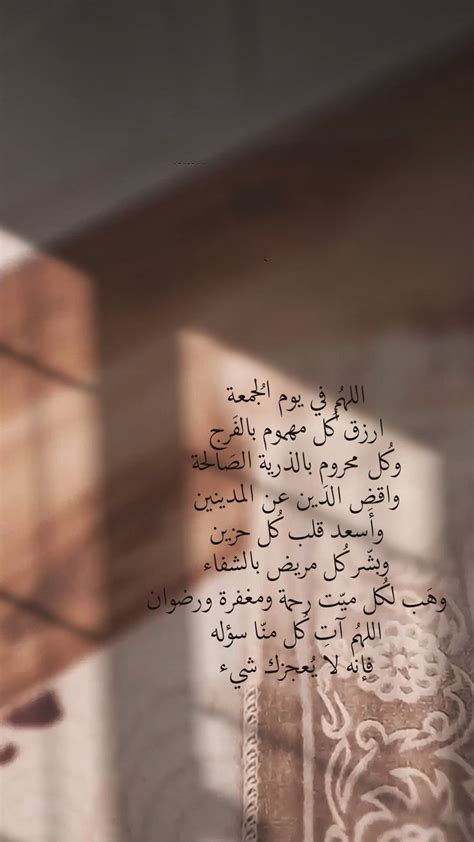 اللهُم في يوم الجُمعة
ارزق كُل مهموم بالفَرج
وكُل محروم بالذرية الصَالحة
واقضِ الدَين عن المدينين
وأَسعد قلب كُل حزين
وبشّر كُل مريض بالشفاء
وهَب لكُل ميّت رحمة ومغفرة ورضوان
اللهُم آتِ كُل منّا سؤله
فإنه لا يُعجزك شيء